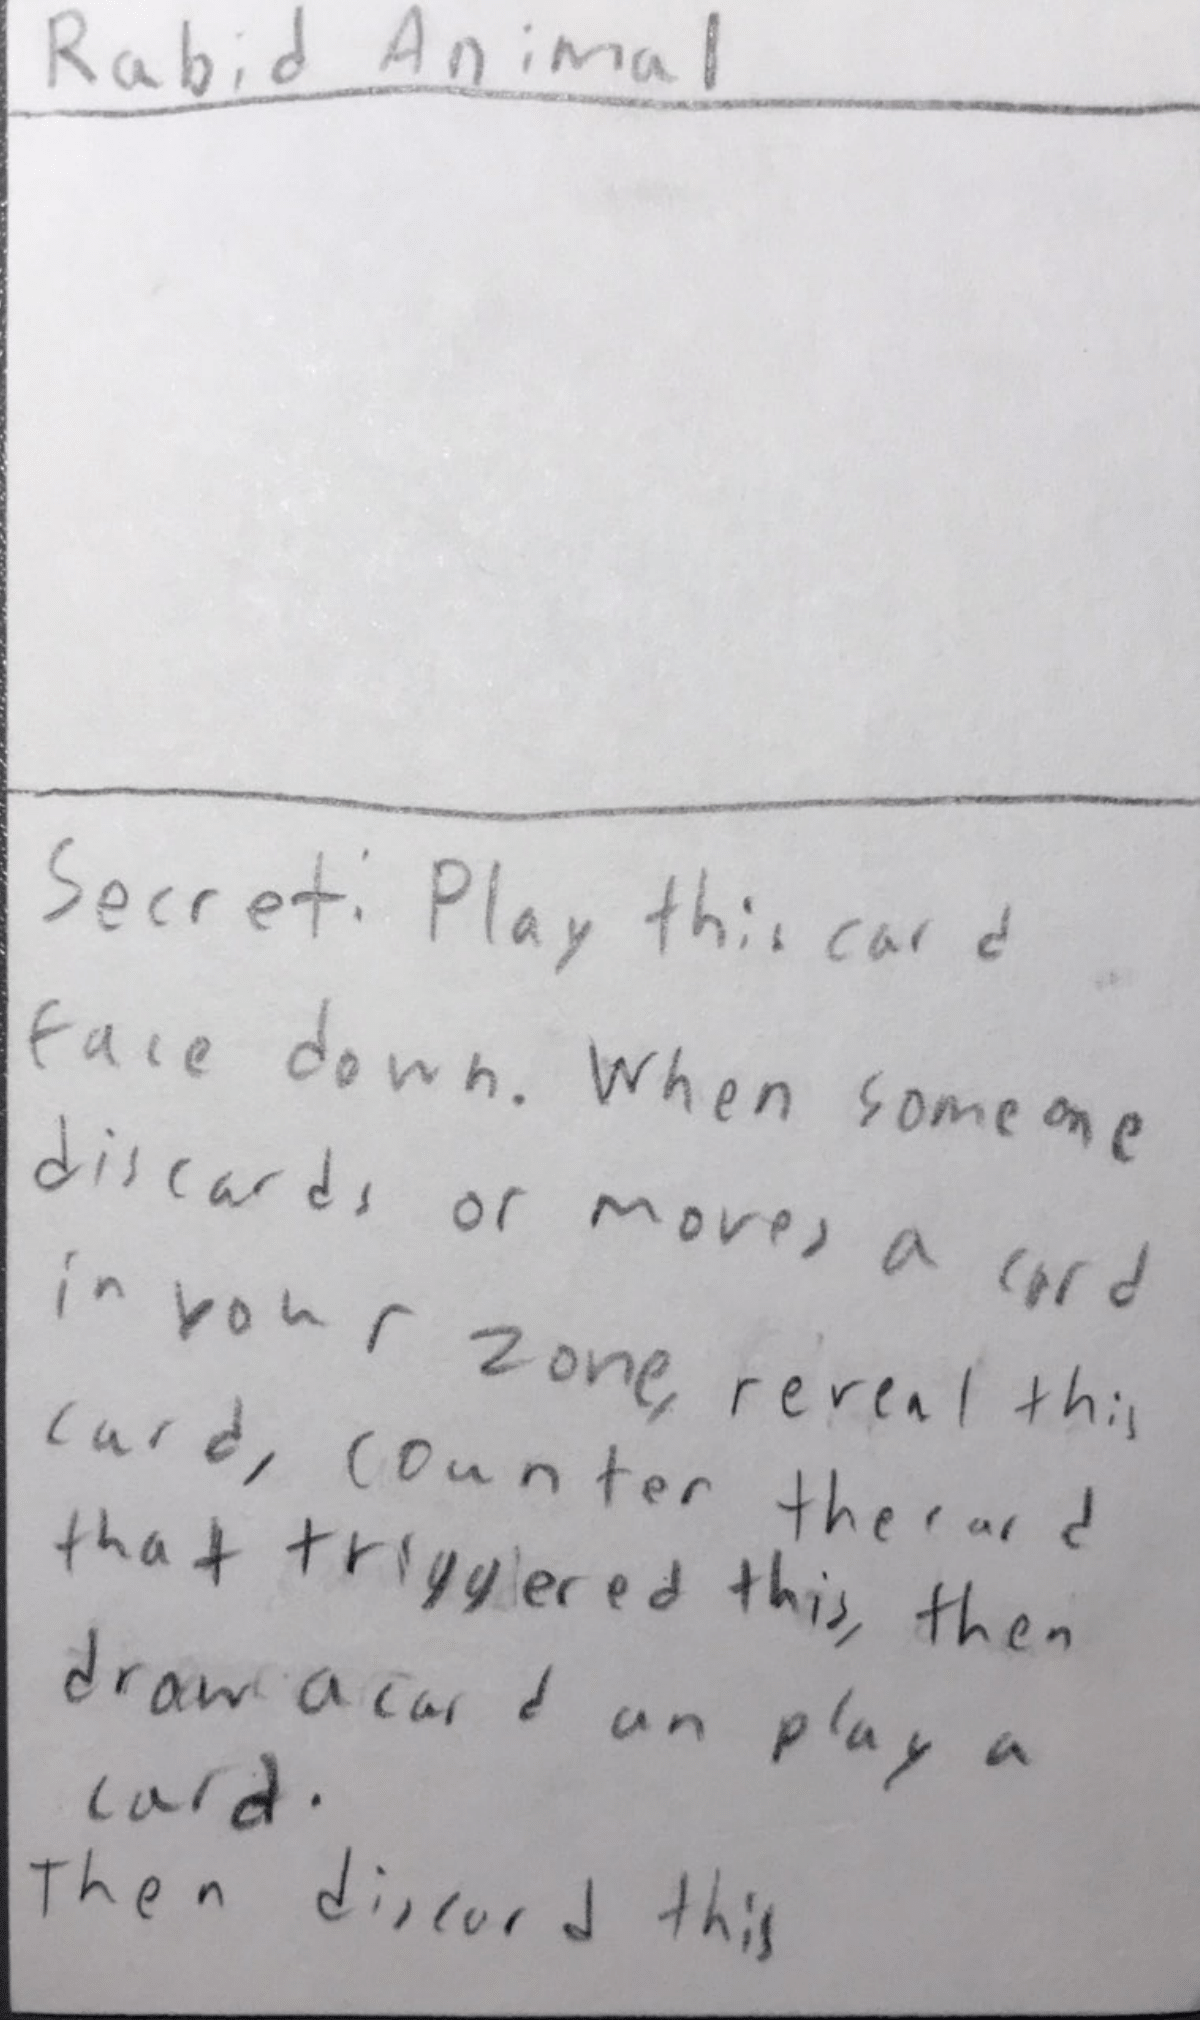 Rabid Animal
Secret: Play this card
Face down. When someone
discards or moves a card
in your zone, reveal this
card, counter the card
that triggered this, then
draw a card an play a
card.
Then discard this